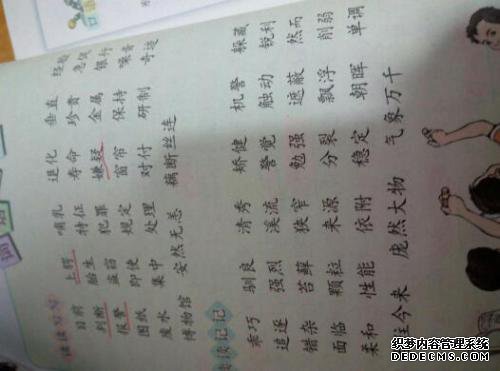 读读写写
目前 上腭 哺乳 退化 垂直
判断 胎生 特征 寿命 珍贵
报警 盗窃 犯罪 嫌疑 金属 银行
图纸 即使 规定 窗帘 保持 噪音
废水 集中 处理 对付 研制 奇迹
博物馆 安然无恙 藕断丝连
读读记记
乖巧 驯良 清秀 矫健 机警 躲藏
追逐 强烈 溪流 警觉 触动 锐利
错杂 苔藓 狭窄 勉强 遮蔽 然而
面临 颗粒 来源 分裂 飘浮 削弱
柔和 性能 依附 稳定 朝晖 单调
往今来 庞然大物 气象万千